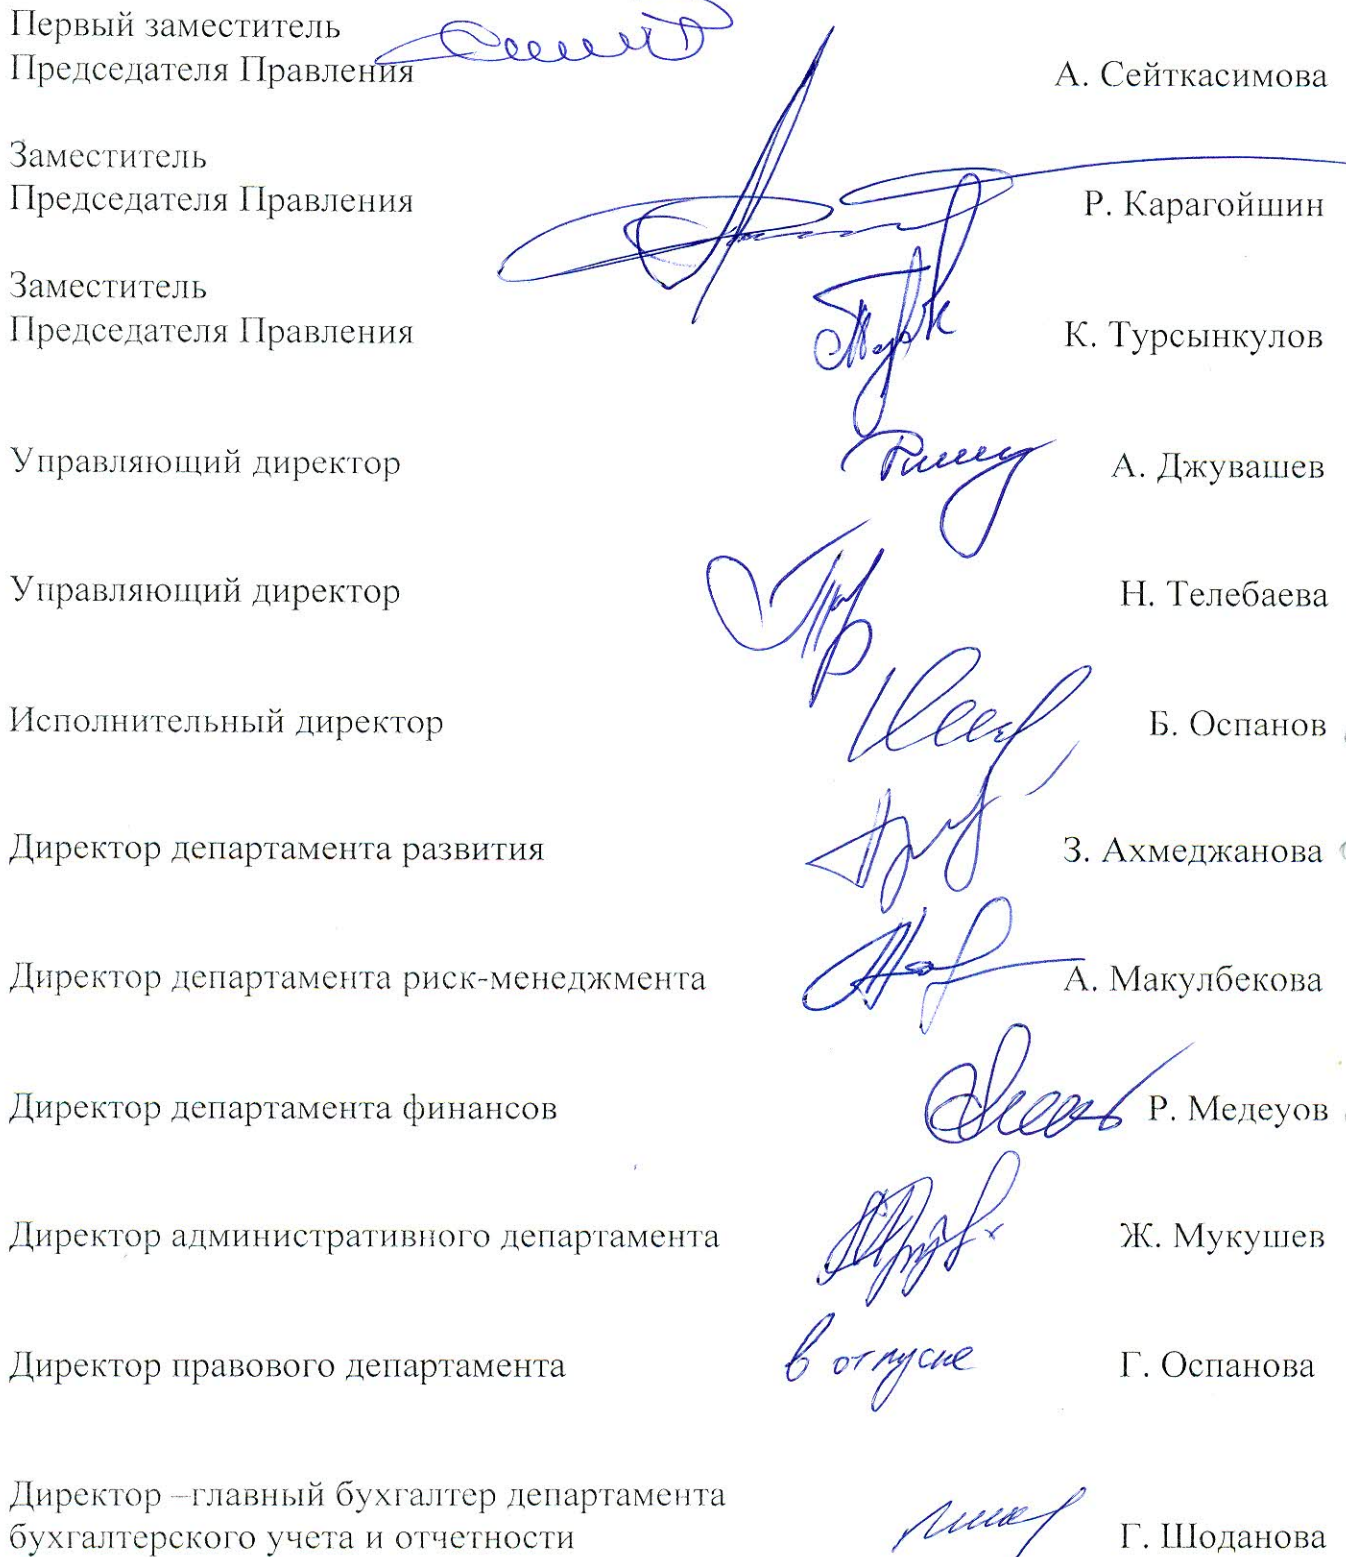 Первый заместитель
Председателя Правления А. Сейткасимова
Заместитель
Председателя Правления Р. Карагойшин
Заместитель
Председателя Правления К. Турсынкулов
Управляющий директор А. Джувашев
Управляющий директор Н. Телебаева
Исполнительный директор Б. Оспанов
Директор департамента развития З. Ахмеджанова
Директор департамента риск-менеджмента А. Макулбекова
Директор департамента финансов Р. Медеуов
Директор административного департамента Ж. Мукушев
Директор правового департамента в отпуске Г. Оспанова
Директор –главный бухгалтер департамента
бухгалтерского учета и отчетности Г. Шоданова